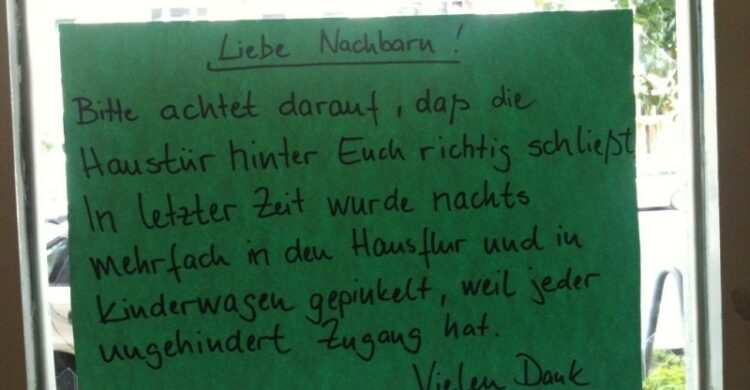 Liebe Nachbarn!
Bitte achtet darauf, daß die
Haustür hinter Euch richtig schließt.
In letzter Zeit wurde nachts
mehrfach in den Hausflur und in
Kinderwagen gepinkelt, weil jeder
ungehindert Zugang hat.
Vielen Dank